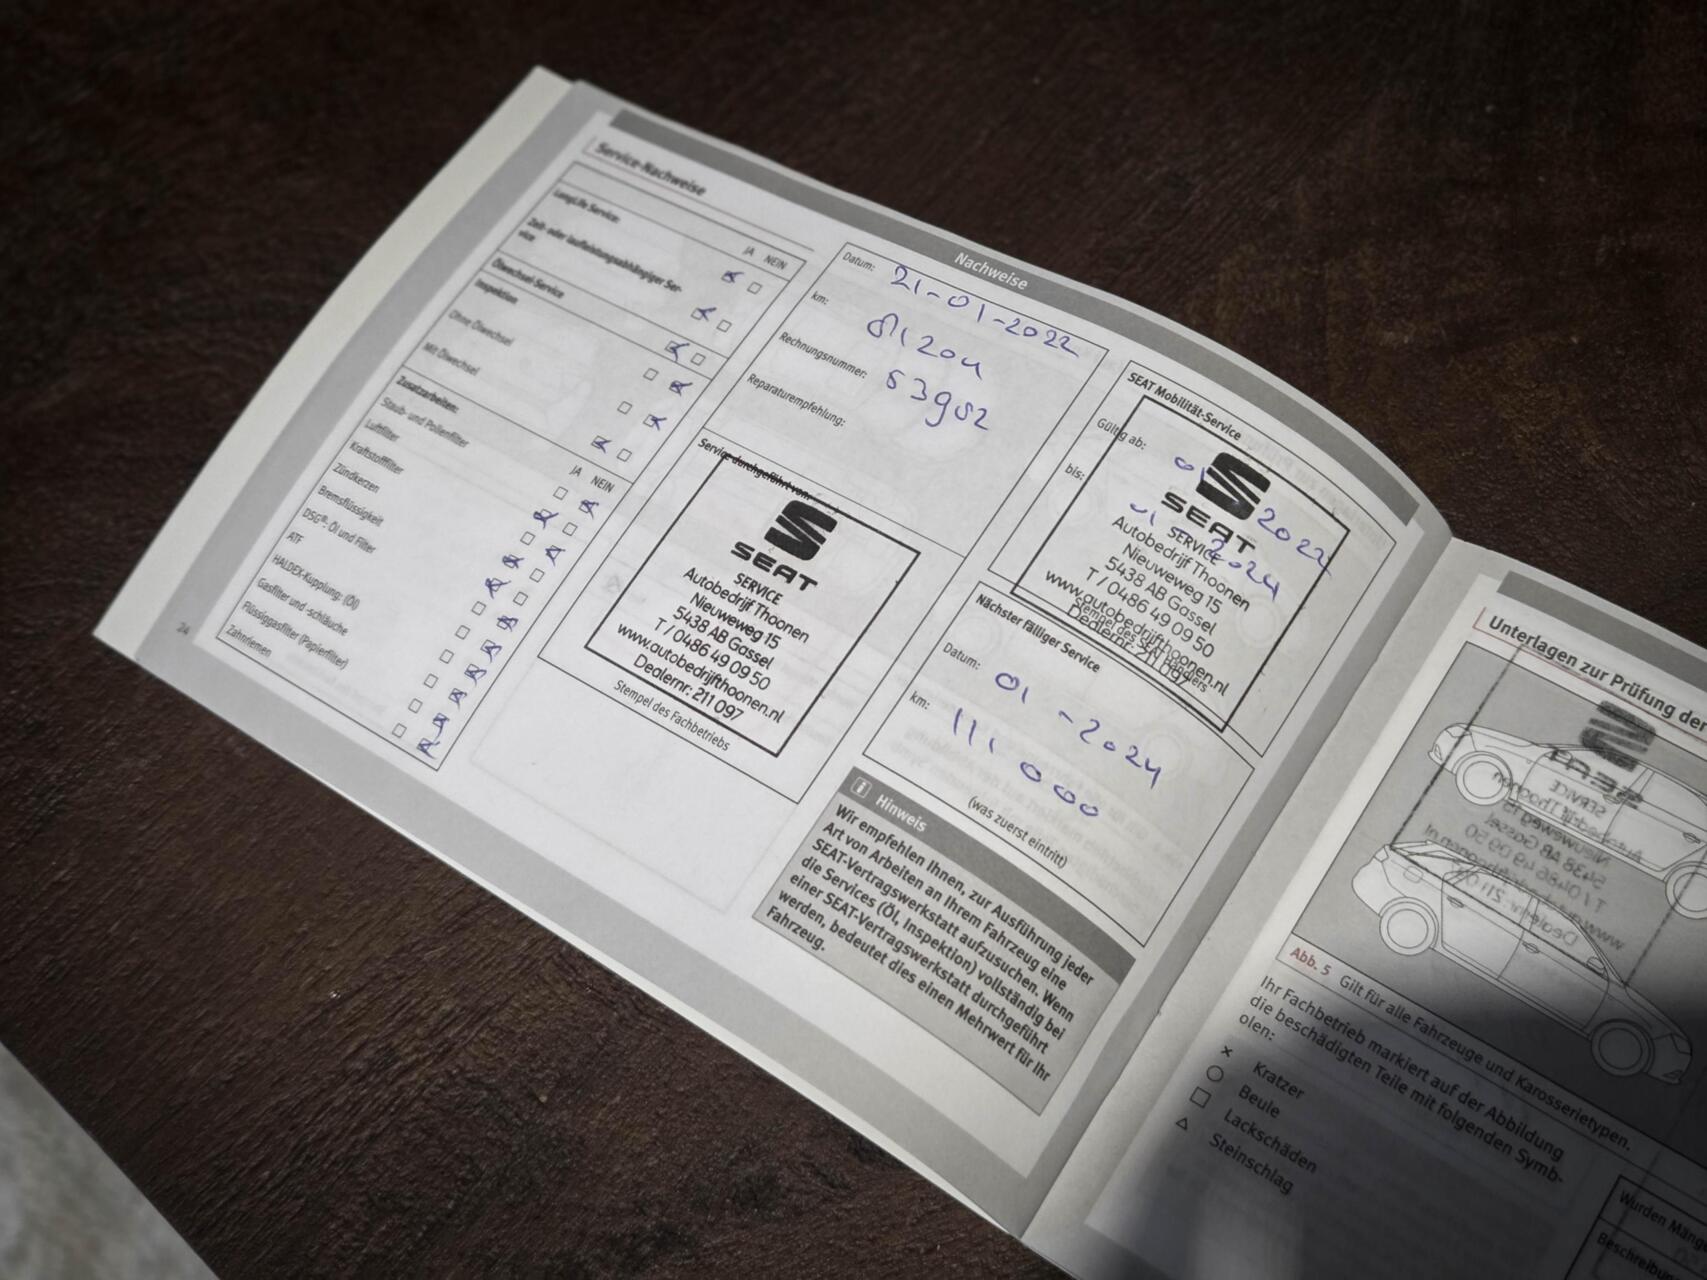 Nachweise
Service-Nachweise
JA NEIN
LongLife Service:
Zeit- oder laufleistungsabhängiger Ser-
vice
Ölwechsel-Service
Inspektion
Ohne Ölwechsel
Mit Ölwechsel
Zusatzarbeiten:
JA NEIN
Staub- und Pollenfilter
Luftfilter
Kraftstofffilter
Zündkerzen
Bremsflüssigkeit
DSG®: Öl und Filter
ATF
HALDEX-Kupplung: (Öl)
Gasfilter und -schläuche
Flüssiggasfilter (Papierfilter)
Zahnriemen
24
Datum: 21-01-2022
km:
Rechnungsnummer:
Reparaturempfehlung:
Service durchgeführt von:
SEAT
SERVICE
Autobedrijf Thoonen
Nieuweweg 15
5438 AB Gassel
T / 0486 49 09 50
www.autobedrijfthoonen.nl
Dealernr: 211 097
Stempel des Fachbetriebs
SEAT Mobilität-Service
Gültig ab: 01 2022
bis: 01 - 2024
SEAT
SERVICE
Autobedrijf Thoonen
Nieuweweg 15
5438 AB Gassel
T / 0486 49 09 50
www.autobedrijfthoonen.nl
Dealernr: 211 097
Nächster fälliger Service
Datum: 01 - 2024
km: 111.000
(was zuerst eintritt)
Hinweis
Wir empfehlen Ihnen, zur Ausführung jeder
Art von Arbeiten an Ihrem Fahrzeug eine
SEAT-Vertragswerkstatt aufzusuchen. Wenn
die Services (Öl, Inspektion) vollständig bei
einer SEAT-Vertragswerkstatt durchgeführt
werden, bedeutet dies einen Mehrwert für Ihr
Fahrzeug.
Unterlagen zur Prüfung der
Abb. 5 Gilt für alle Fahrzeuge und Karosserietypen.
Ihr Fachbetrieb markiert auf der Abbildung
die beschädigten Teile mit folgenden Symb-
olen:
Kratzer
Beule
Lackschäden
Steinschlag
Wurden Mäng
Beschreibu